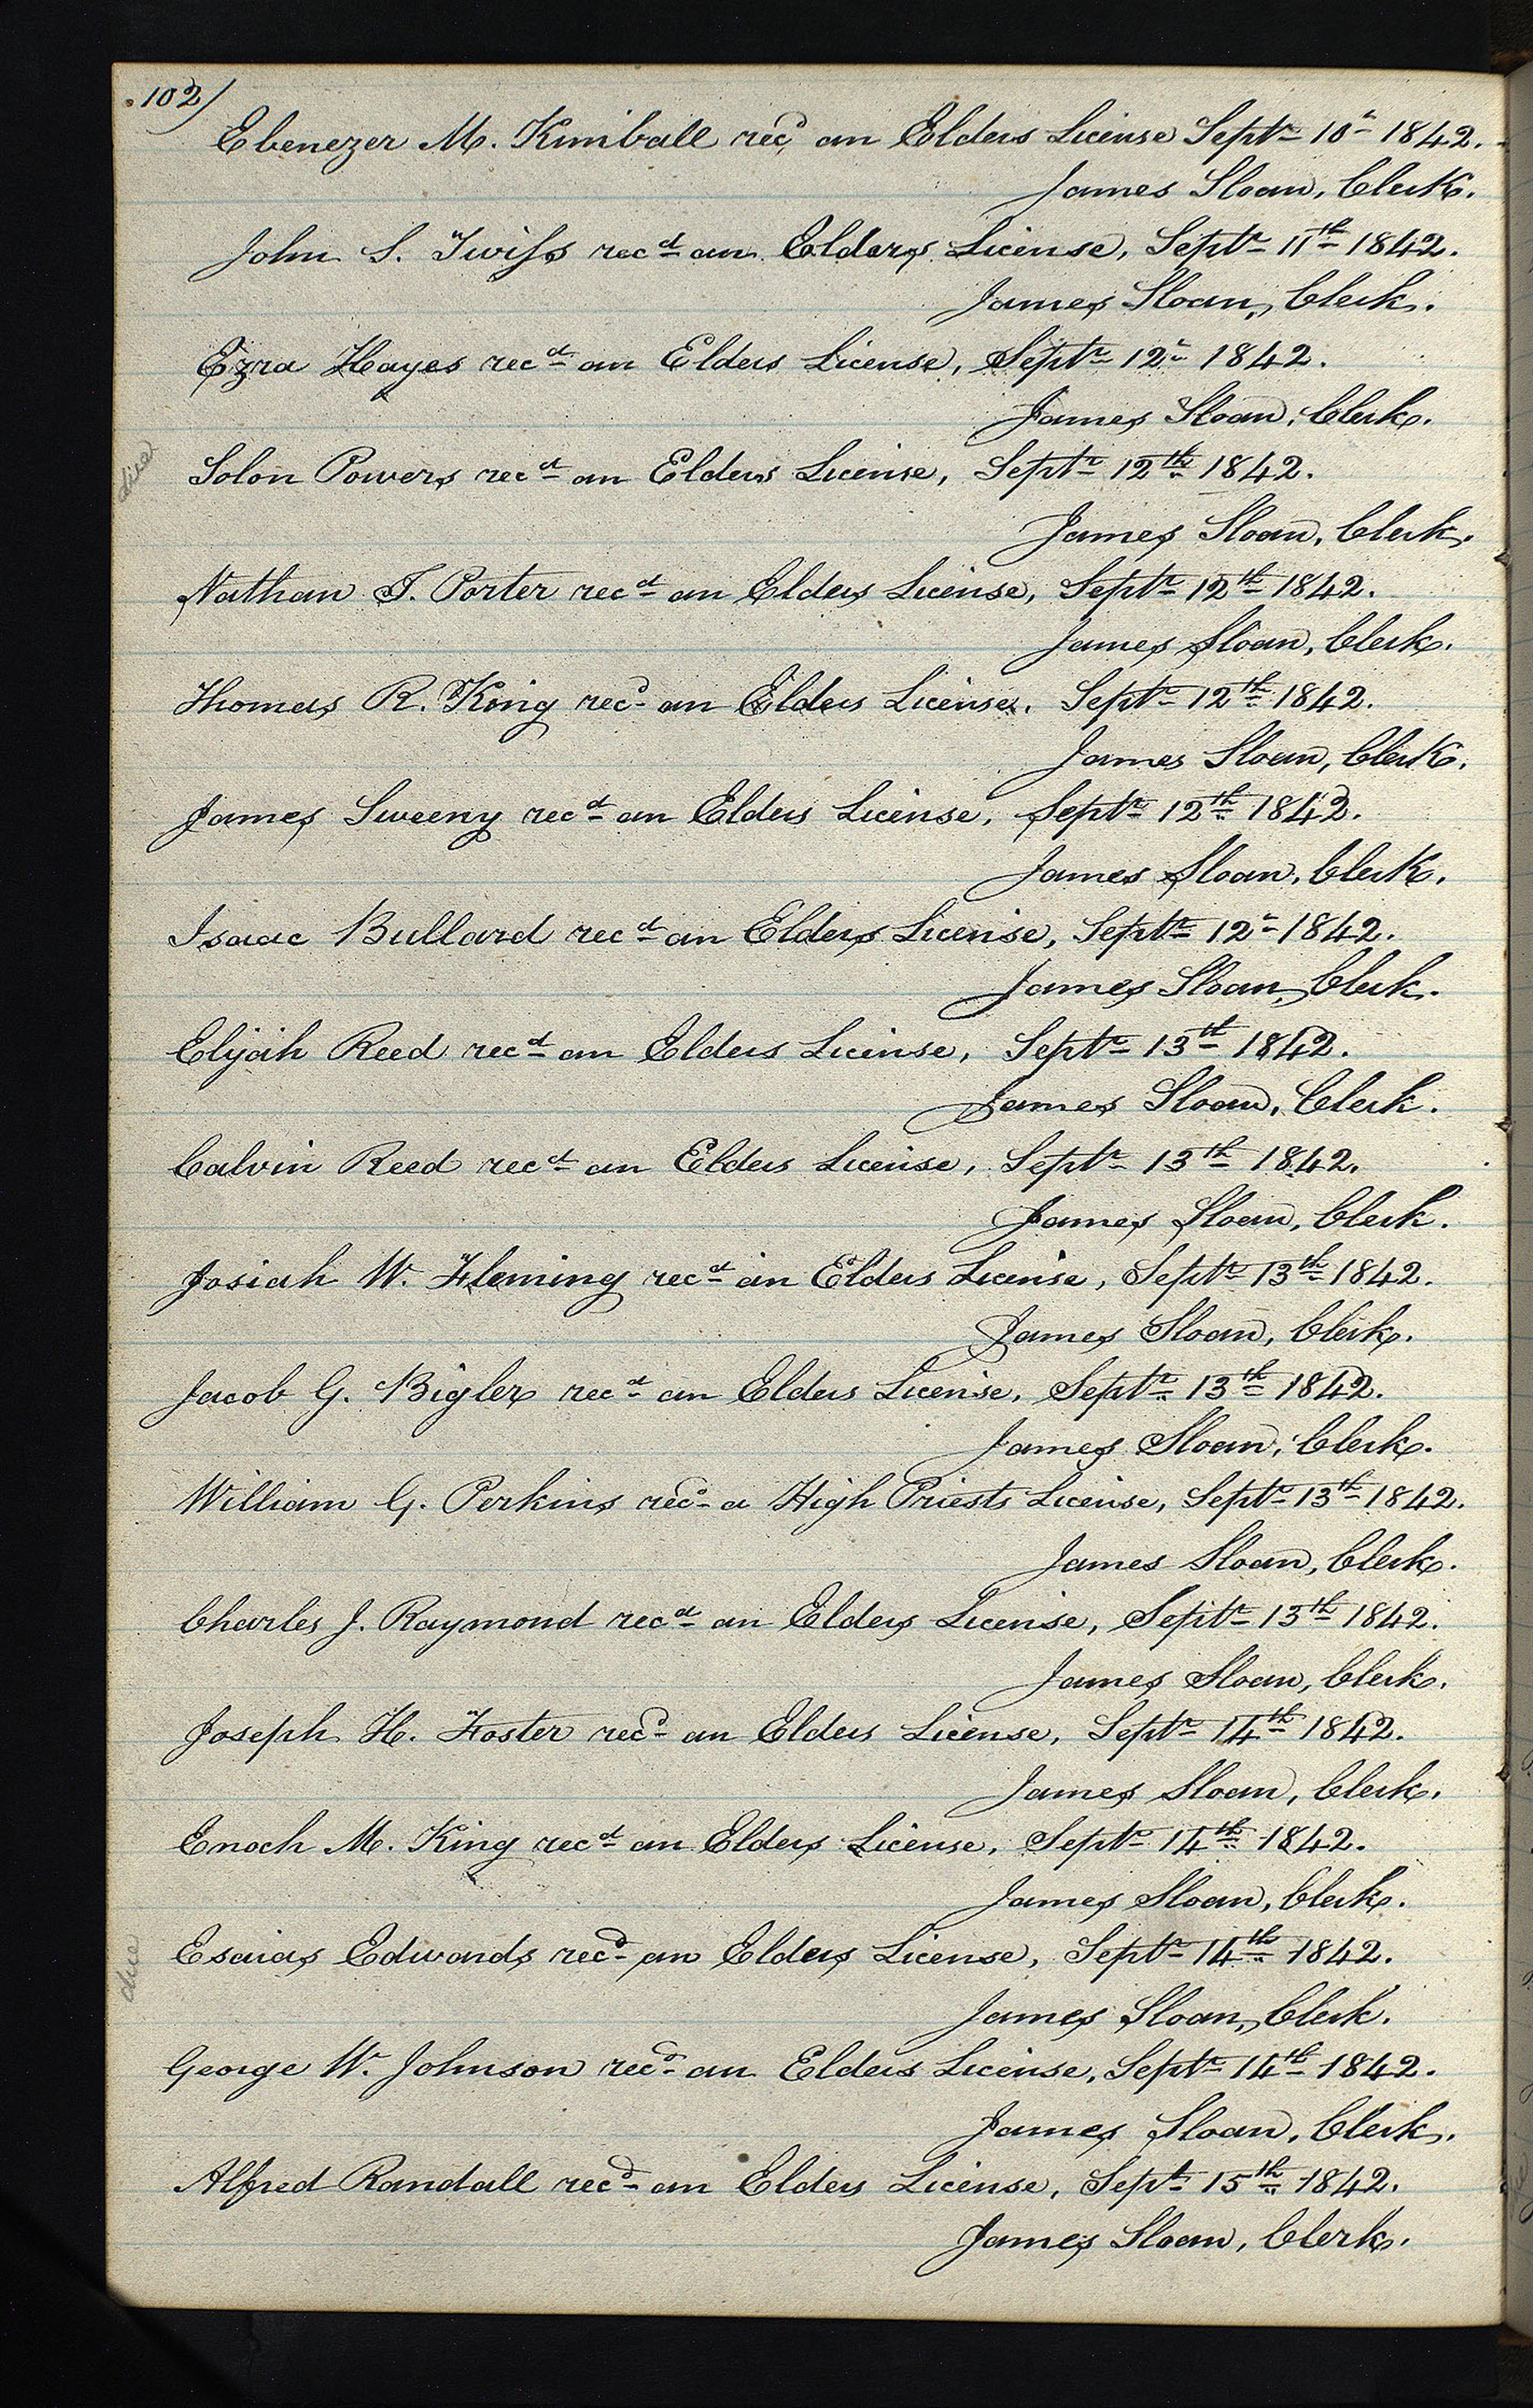 102)
Ebenezer M. Kimball recd an Elders License Septr 10th 1842.
James Sloan, Clerk.
John S. Twiss recd an Elders License, Septr 11th 1842.
James Sloan, Clerk.
Ezra Hayes recd an Elders License, Septr 12th 1842.
James Sloan, Clerk.
Solon Powers recd an Elders License, Septr 12th 1842.
James Sloan, Clerk.
Nathan T. Porter recd an Elders License, Septr 12th 1842.
James Sloan, Clerk.
Thomas R. King recd an Elders License, Septr 12th 1842.
James Sloan, Clerk.
James Sweeny recd an Elders License, Septr 12th 1842.
James Sloan, Clerk.
Isaac Bullard recd an Elders License, Septr 12th 1842.
James Sloan, Clerk.
Elijah Reed recd an Elders License, Septr 13th 1842.
James Sloan, Clerk.
Calvin Reed recd an Elders License, Septr 13th 1842.
James Sloan, Clerk.
Josiah W. Fleming recd an Elders License, Septr 13th 1842.
James Sloan, Clerk.
Jacob G. Bigler recd an Elders License, Septr 13th 1842.
James Sloan, Clerk.
William G. Perkins recd a High Priests License, Septr 13th 1842.
James Sloan, Clerk.
Charles J. Raymond recd an Elders License, Septr 13th 1842.
James Sloan, Clerk.
Joseph H. Foster recd an Elders License, Septr 14th 1842.
James Sloan, Clerk.
Enoch M. King recd an Elders License, Septr 14th 1842.
James Sloan, Clerk.
Esaias Edwards recd an Elders License, Septr 14th 1842.
James Sloan, Clerk.
George W. Johnson recd an Elders License, Septr 14th 1842.
James Sloan, Clerk.
Alfred Randall recd an Elders License, Sept 15th 1842.
James Sloan, Clerk.